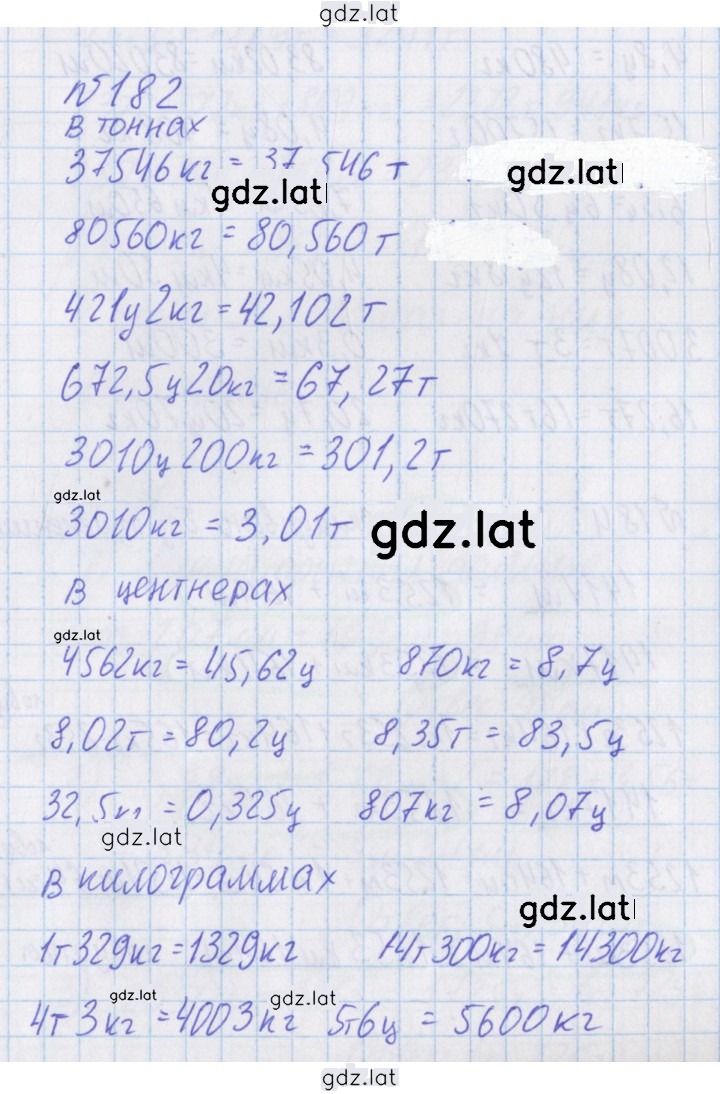 gdz.lat
№182
в тоннах
37546кг = 37,546т
gdz.lat
gdz.lat
80560кг = 80,560т
421ц2кг = 42,102т
672,5ц20кг = 67,27т
3010ц200кг = 301,2т
gdz.lat
3010кг = 3,01т gdz.lat
в центнерах
gdz.lat
4562кг = 45,62ц 870кг = 8,7ц
8,02т = 80,2ц 8,35т = 83,5ц
32,5кг = 0,325ц 807кг = 8,07ц
gdz.lat
в килограммах
gdz.lat
1т329кг = 1329кг 14т300кг = 14300кг
gdz.lat gdz.lat
4т3кг = 4003кг 5т6ц = 5600кг
gdz.lat